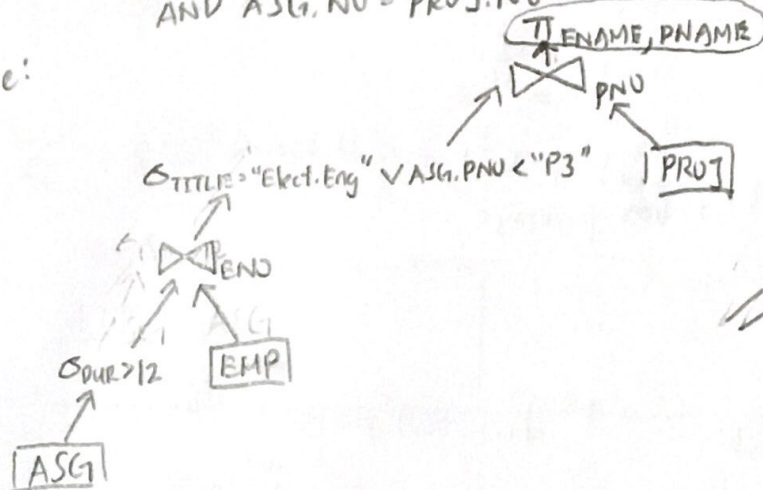 AND ASG.NO = PROJ.
π ENAME, PNAME
e:
⋈ PNO
σ TITLE="Elect.Eng" ∨ ASG.PNO < "P3"
PROJ
⋈ ENO
σ DUR>12
EMP
ASG